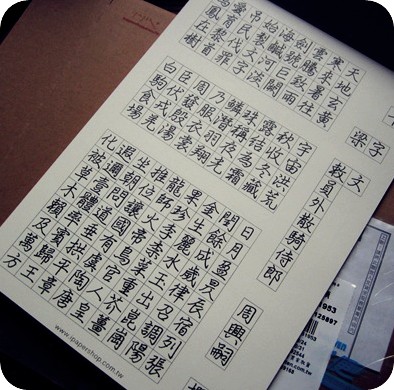 字
文
梁
敕員外散騎侍郎
周興嗣
天地玄黃
宇宙洪荒
日月盈昃辰宿列張
寒來暑往
秋收冬藏
閏餘成歲律召調
雲騰致雨
露結為霜
金生麗水玉出崑岡
劍號巨闕
珠稱夜光
果珍李柰菜重芥薑
海鹹河淡
鱗潛羽翔
龍師火帝鳥官人皇
始製文字
乃服衣裳
推位讓國有虞陶唐
吊民伐罪
周發殷湯
坐朝問道垂拱平章
愛育黎首
臣伏戎羌
遐邇壹體率賓歸王
鳳在樹
白駒食場
化被草木賴及萬方
www.ipapershop.com.tw